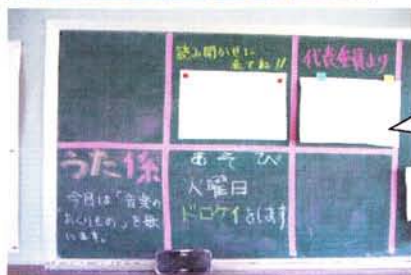 読み聞かせに
来てね!!
代表委員より
うた係
今月は「音楽の
おくりもの」を歌
います。
あそび
火曜日
ドロケイをします